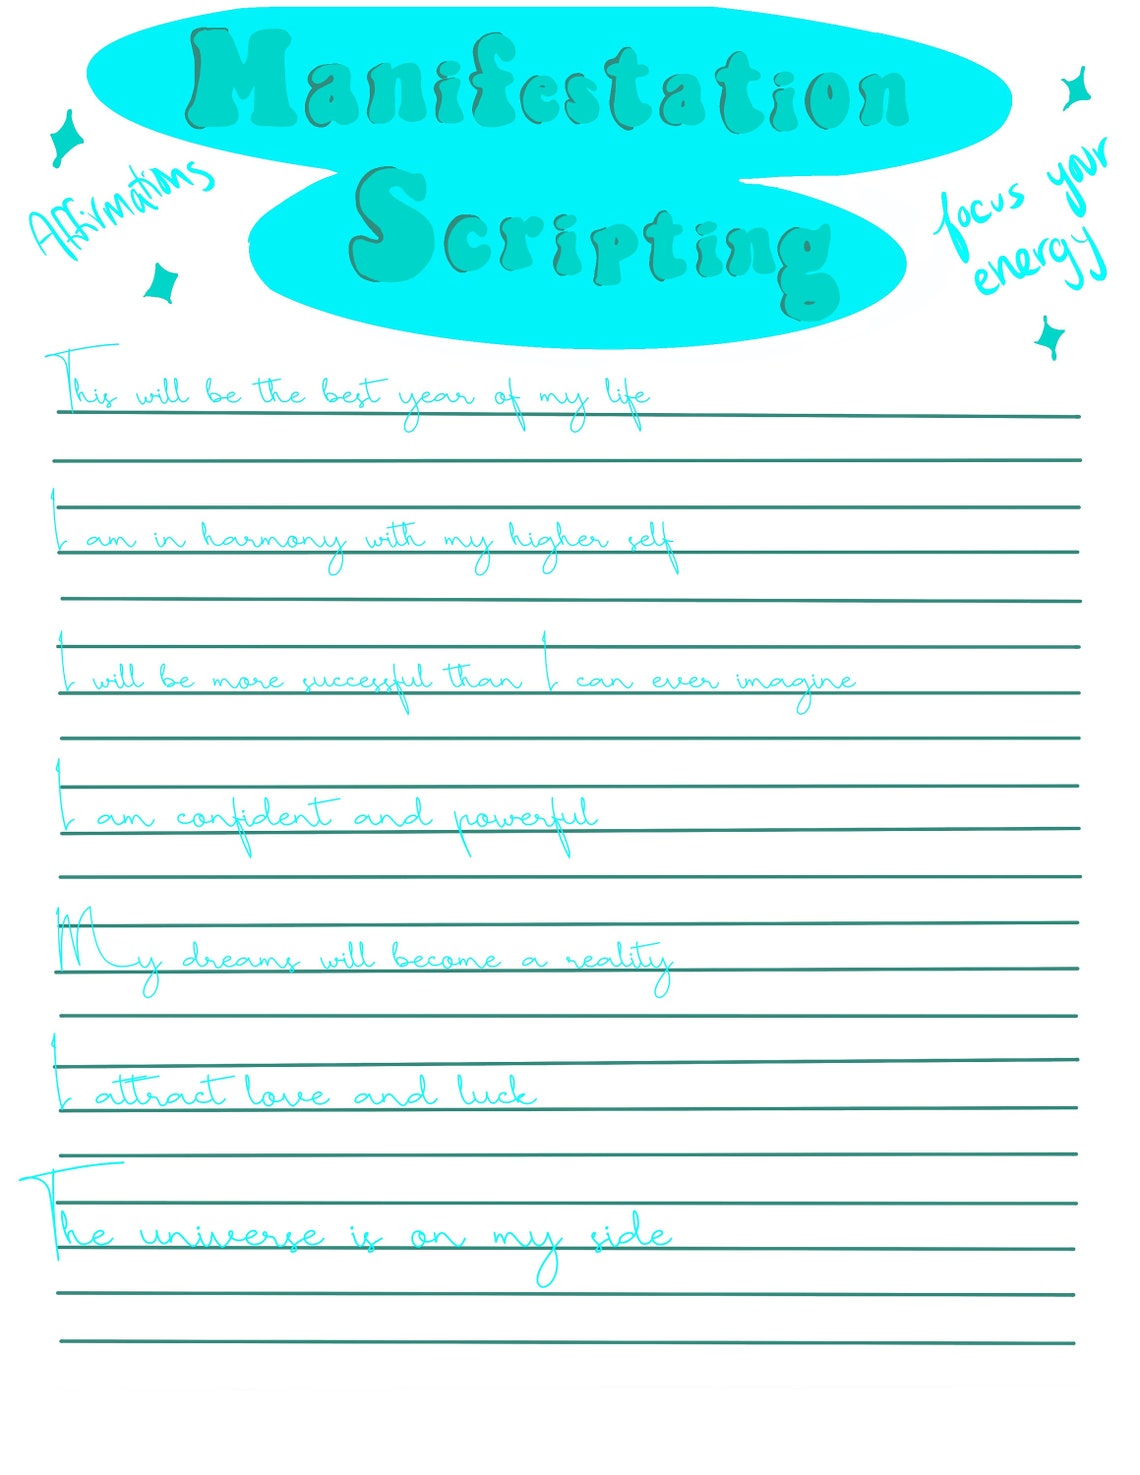 Manifestation
Scripting
Affirmations
focus your
energy
This will be the best year of my life
I am in harmony with my higher self
I will be more successful than I can ever imagine
I am confident and powerful
My dreams will become a reality
I attract love and luck
The universe is on my side